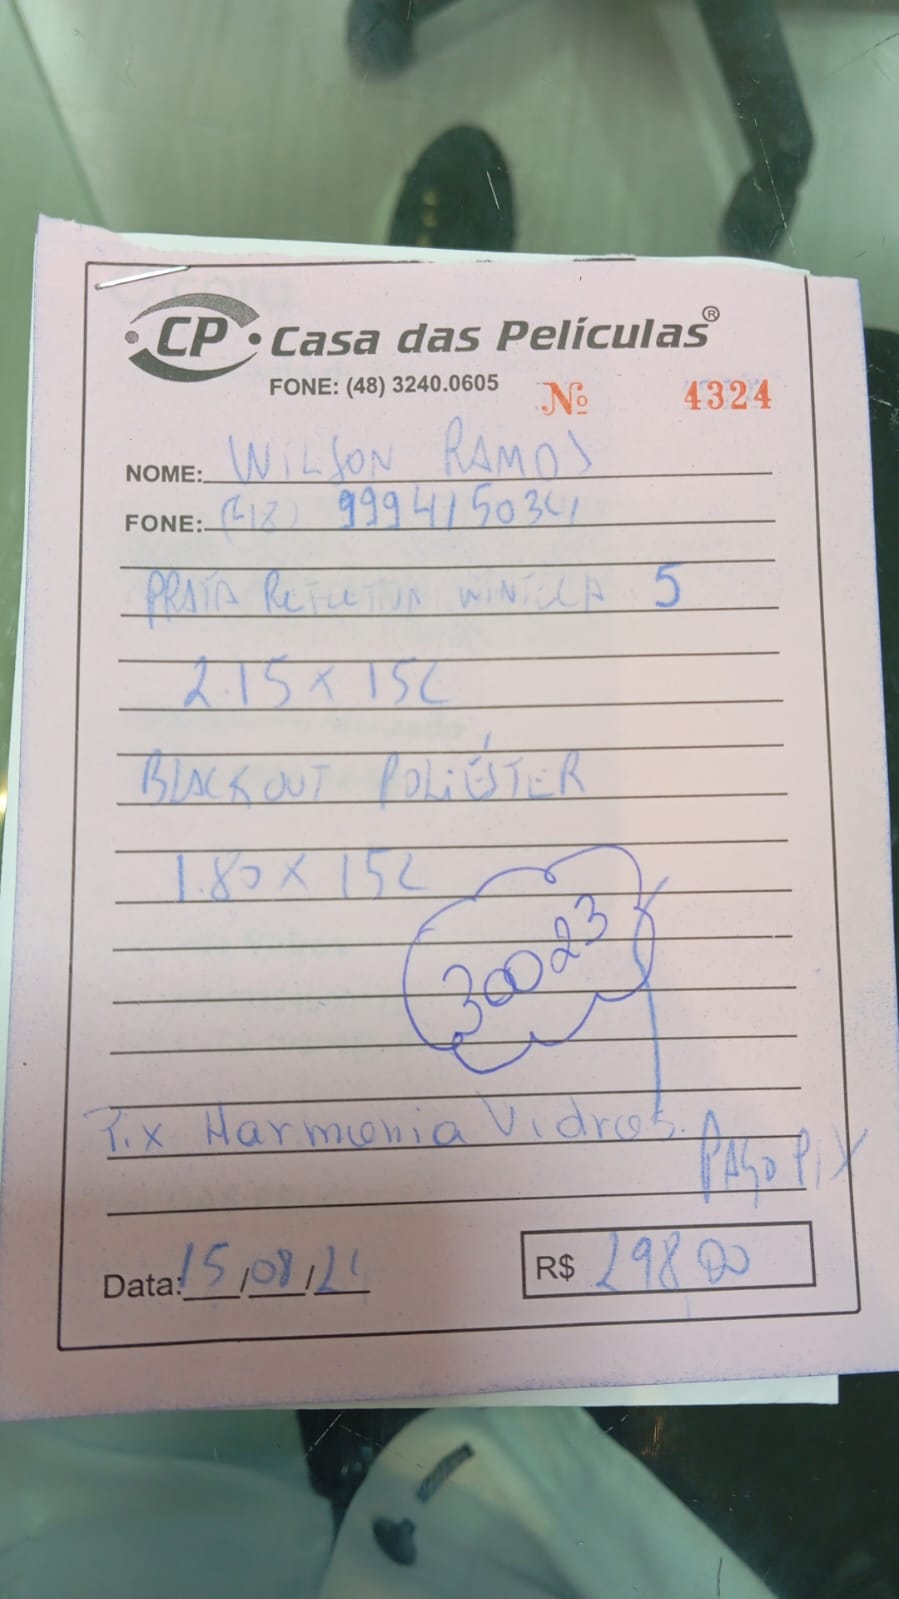 CP Casa das Películas®
FONE: (48) 3240.0605
Nº 4324
NOME: WILSON RAMOS
FONE: (48) 999415034
PRATA REFLETIVA 5
2.15 x 152
BLACKOUT POLIÉSTER
1.80 x 152
30023
Pix Harmonia Vidros.
PAGO PIX
Data: 15/08/24
R$ 298 00